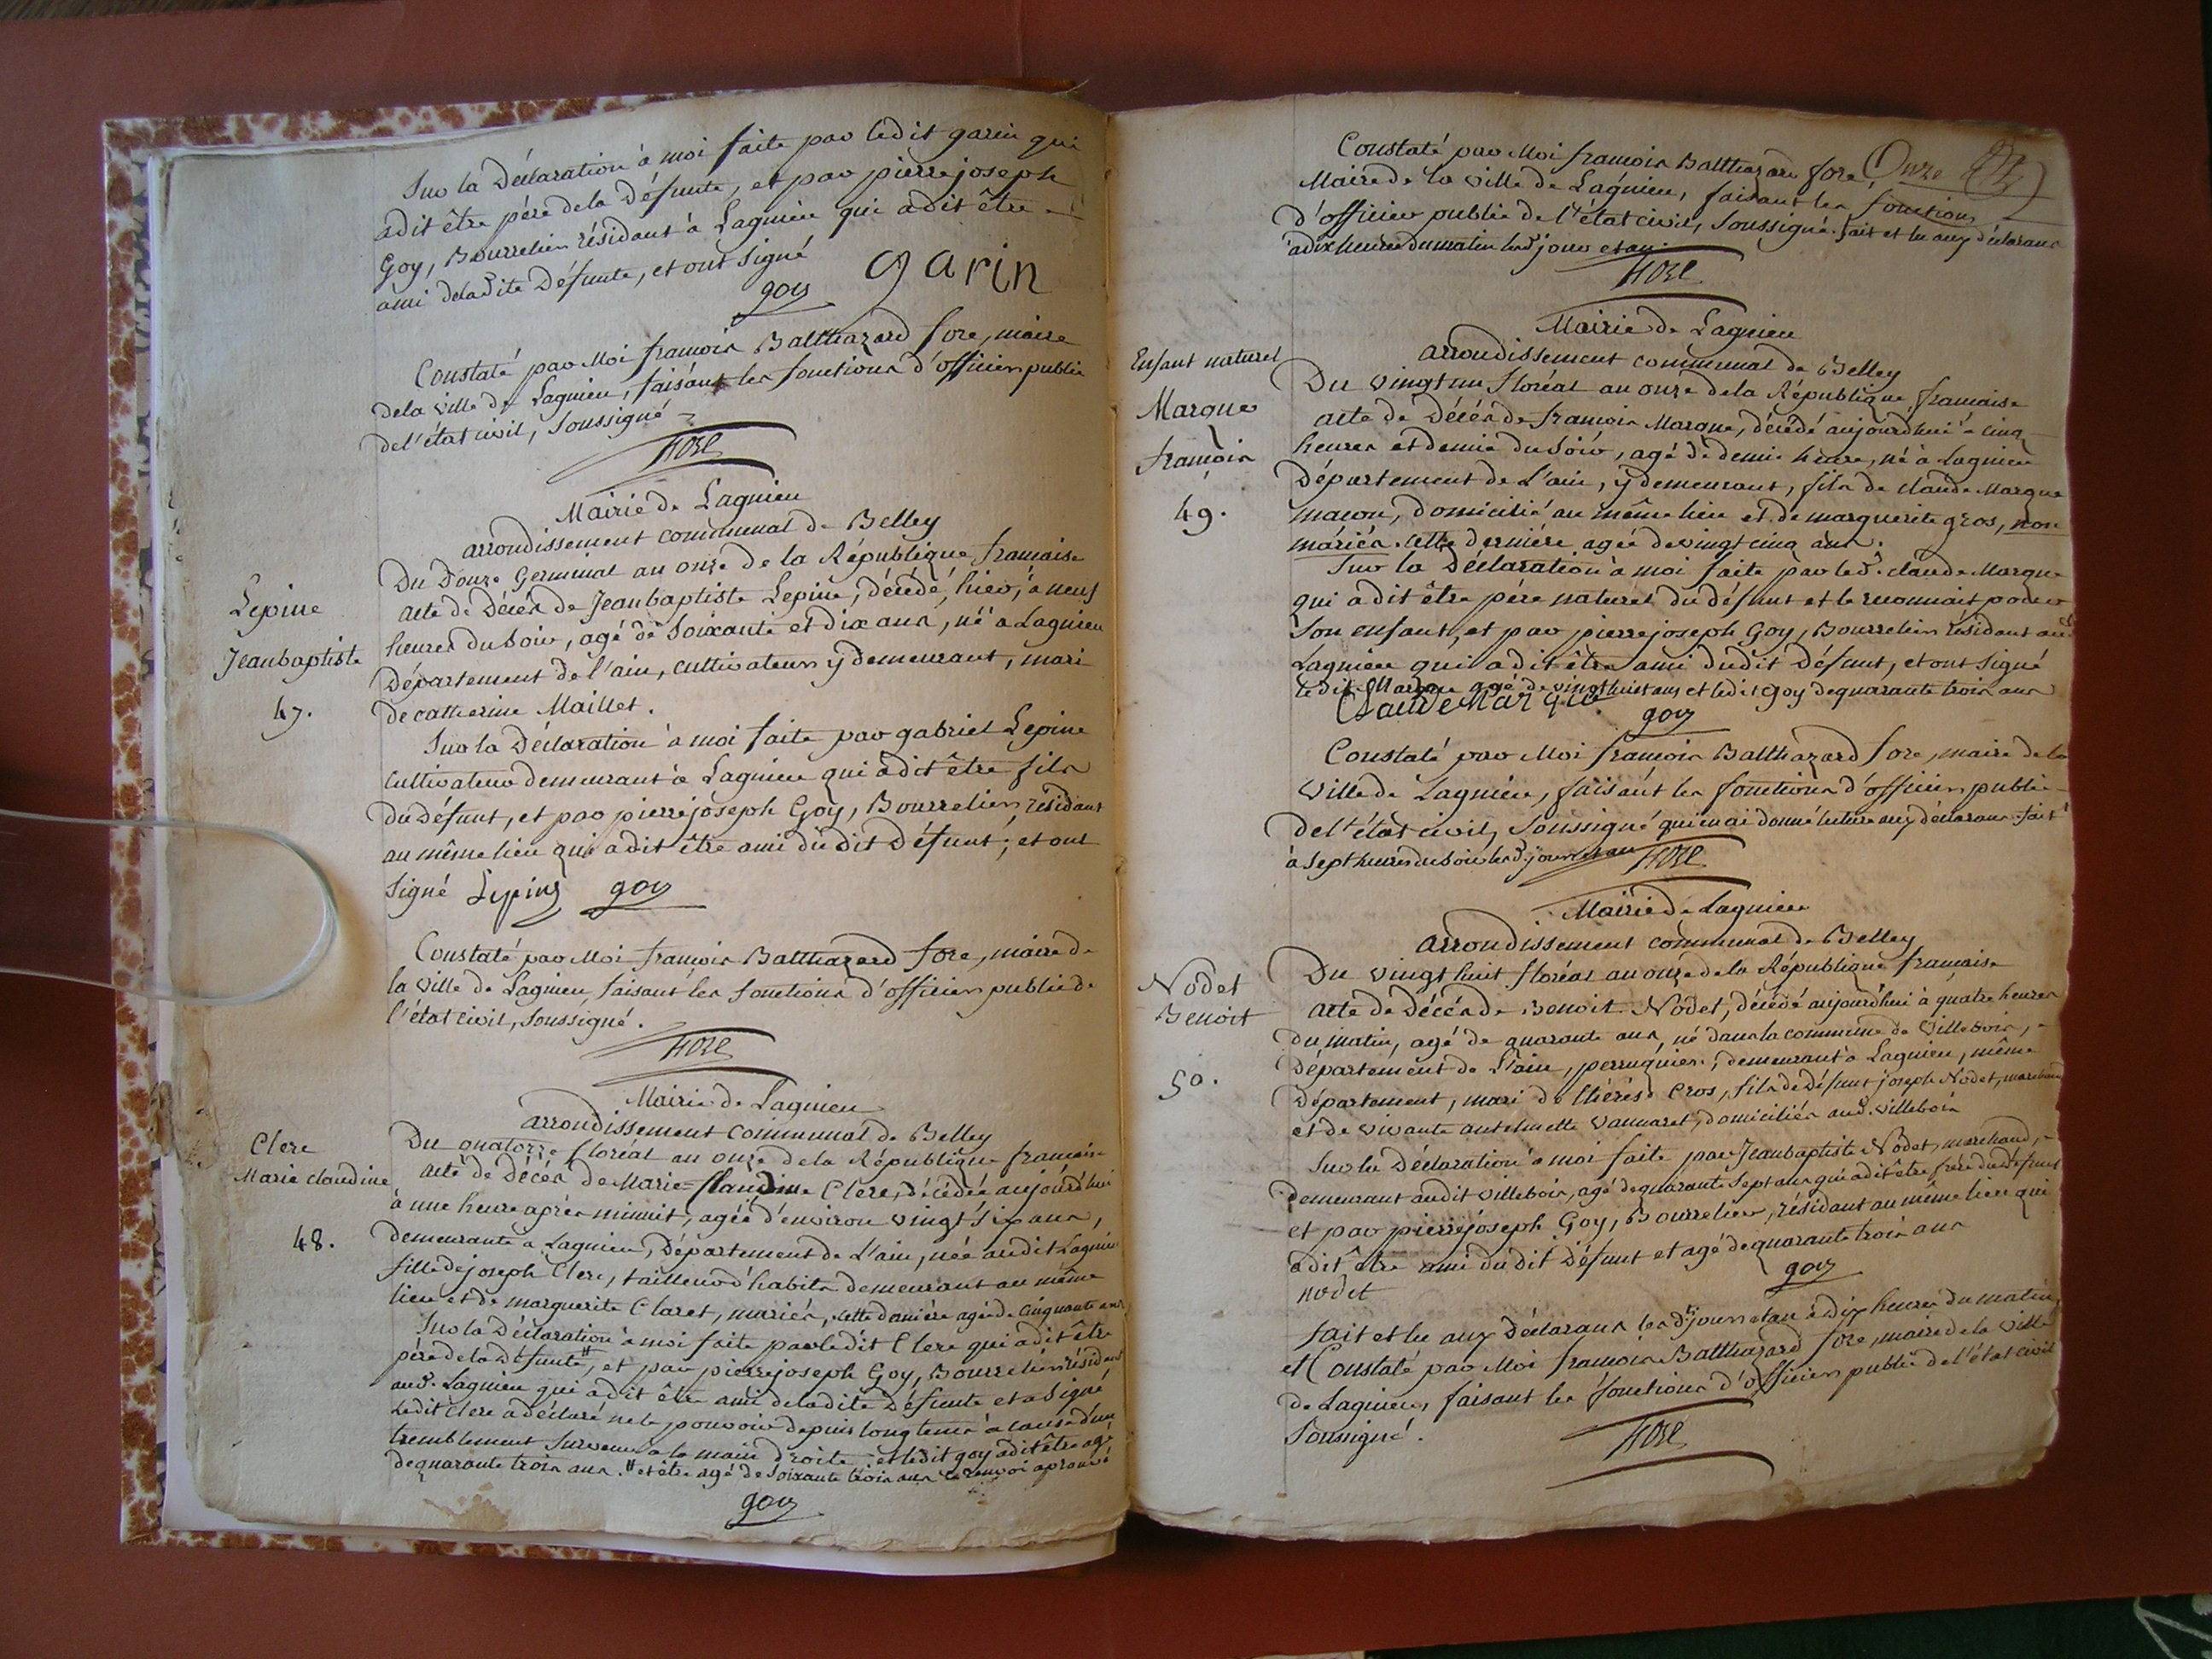 Sur la Déclaration à moi faite par ledit garin qui
a dit être pére de la Défunte, et par pierre joseph
Goy, Bourrelier résidant à Lagnieu qui a dit être
ami de ladite Défunte, et ont Signé
goy garin
Constaté par Moi françois Balthazard fore, maire
de la ville de Lagnieu, faisant les fonctions d'officier public
de l'état civil, Soussigné
fore
Mairie de Lagnieu
arrondissement communal de Belley
Lepine
Jean baptiste
47.
Du Douze Germinal an onze de la République française
acte de Décès de Jean baptiste Lepine, décédé, hier, à neuf
heures du Soir, agé de Soixante et dix ans, né à Lagnieu
Département de l'ain, cultivateur y demeurant, mari
de catherine Maillet.
Sur la Déclaration à moi faite par gabriel Lepine
cultivateur demeurant à Lagnieu qui a dit être fils
du défunt, et par pierre joseph Goy, Bourrelier, résidant
au même lieu qui a dit être ami du dit Défunt; et ont
Signé Lepine goy
Constaté par Moi françois Balthazard fore, maire de
la ville de Lagnieu, faisant les fonctions d'officier public de
l'état civil, Soussigné.
fore
Mairie de Lagnieu
arrondissement communal de Belley
Clere
Marie claudine
48.
Du quatorze floréal an onze de la République française
acte de Décès de Marie-Claudine Clere, décédée aujourd'hui
à une heure après minuit, agée d'environ vingt Six ans,
demeurante à Lagnieu, Département de L'ain, née audit Lagnieu
fille de joseph Clere, tailleur d'habits demeurant au même
lieu et de marguerite Claret, mariés, cette dernière agée de cinquante ans
Sur la Déclaration à moi faite par ledit Clere qui a dit être
pére de la Défunte #, et par pierre joseph Goy, Bourrelier résidant
aud. Lagnieu qui a dit être ami de ladite Défunte et a Signé
Ledit Clere a déclaré ne le pouvoir depuis long tems à cause d'un
tremblement Survenu à la main droite, et ledit goy a dit être agé
de quarante trois ans. # et être agé de Soixante trois ans ce renvoi aprouvé
goy
Constaté par Moi françois Balthazard fore, Onze
Maire de la ville de Lagnieu, faisant les fonctions
d'officier public de l'état civil, Soussigné. fait et lu aux déclarans
à dix heures du matin lesd. jour et an.
fore
Mairie de Lagnieu
arrondissement communal de Belley
Enfant naturel
Marque
françois
49.
Du vingt un floréal an onze de la République française
acte de Décès de françois Marque, décédé aujourd'hui à cinq
heures et demie du Soir, agé de demie heure, né à Lagnieu
Département de L'ain, y demeurant, fils de claude Marque
maçon, domicilié au même lieu et de marguerite gros, non
mariés. cette dernière agée de vingt cinq ans.
Sur la Déclaration à moi faite par led. claude Marque
qui a dit être pére naturel du défunt et le reconnait pour
Son enfant, et par pierre joseph Goy, Bourrelier résidant aud.
Lagnieu qui a dit être ami dudit Défunt, et ont Signé
ledit Marque agé de vingt huit ans et ledit goy de quarante trois ans
Claude Marque
goy
Constaté par Moi françois Balthazard fore, maire de la
ville de Lagnieu, faisant les fonctions d'officier public
de l'état civil, Soussigné qui en ai donné lecture aux déclarans. fait
à Sept heures du Soir lesd. jour et an fore
Mairie de Lagnieu
arrondissement communal de Belley
Nodet
Benoit
50.
Du vingt huit floréal an onze de la République française
acte de Décès de Benoit Nodet, décédé aujourd'hui à quatre heures
du matin, agé de quarante ans, né dans la commune de Villebois,
Département de L'ain, perruquier, demeurant à Lagnieu, même
Département, mari de thérése Cros, fils de défunt joseph Nodet, marchand
et de vivante antelmette vannaret, domiciliés aud. villebois
Sur la Déclaration à moi faite par Jean baptiste Nodet, marchand,
demeurant audit villebois, agé de quarante Sept ans qui a dit être frére du défunt
et par pierre joseph Goy, Bourrelier, résidant au même lieu qui
a dit être ami du dit Défunt et agé de quarante trois ans
nodet goy
fait et lu aux Déclarans lesd. jour et an à dix heures du matin,
et Constaté par Moi françois Balthazard fore, maire de la ville
de Lagnieu, faisant les fonctions d'officier public de l'état civil
Soussigné.
fore